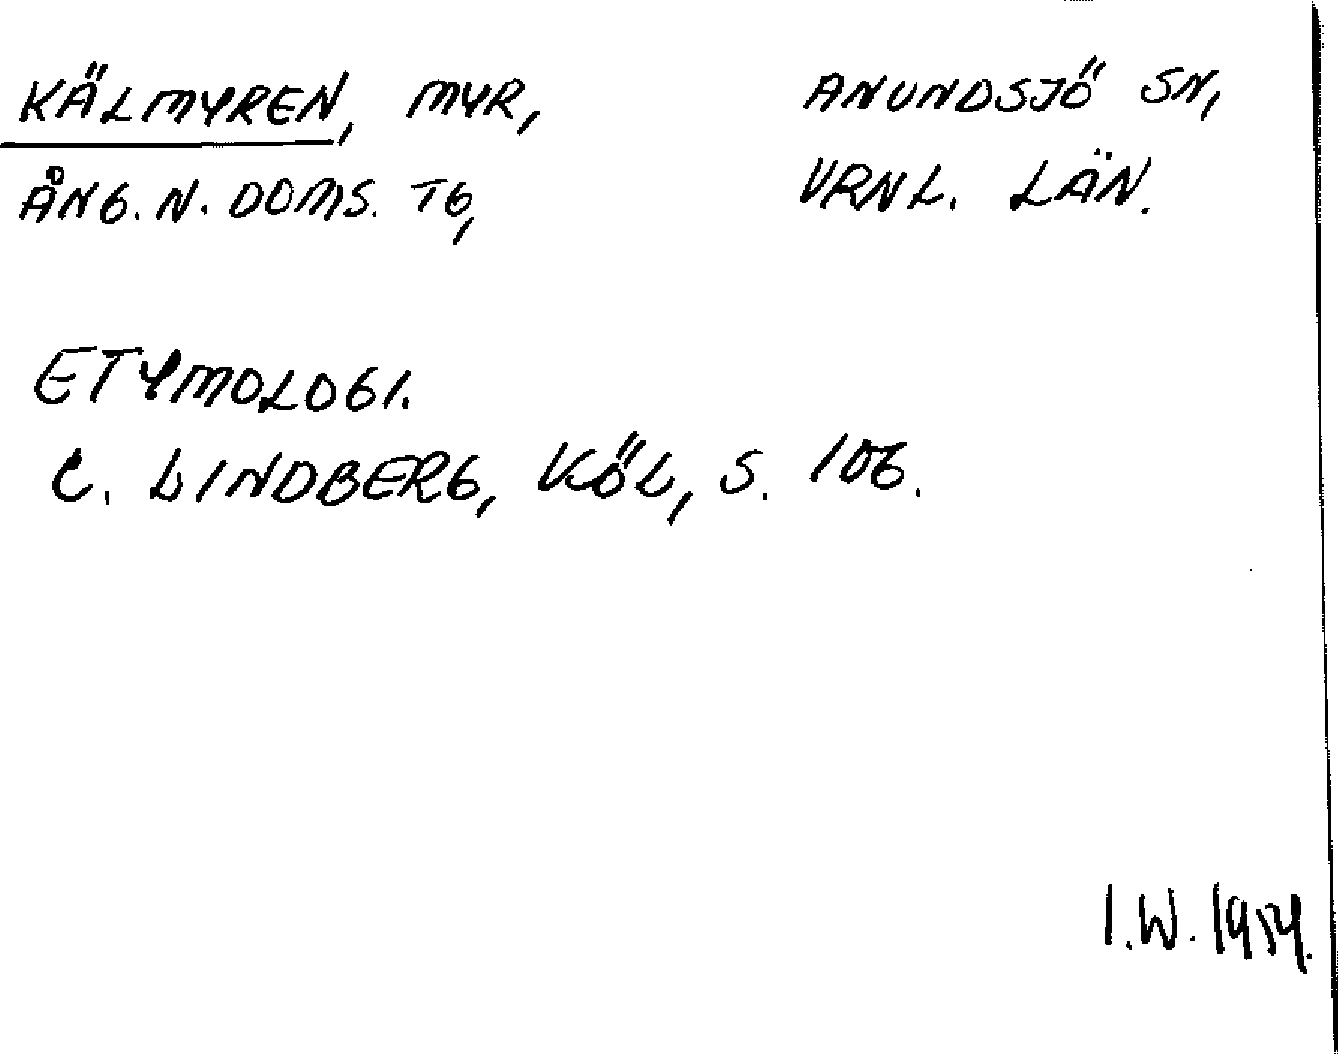 KÄLMYREN, MYR, ANUNDSJÖ SN,
ÅNG. N. DOMS. TG, VRNL. LÄN.
ETYMOLOGI.
C. LINDBERG, KÖL, S. 106.
I.W. 1954.